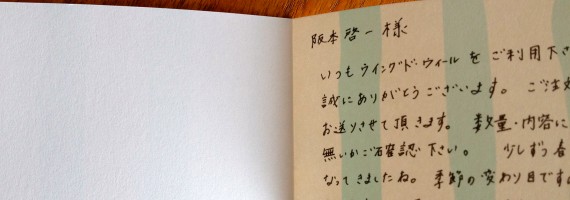 阪本啓一様
いつもウイングド・ウィールをご利用下さ
誠にありがとうございます。ご注文
お送りさせて頂きます。数量・内容に
無いかご確認下さい。少しずつ春
なってきましたね。季節の変わり目です。